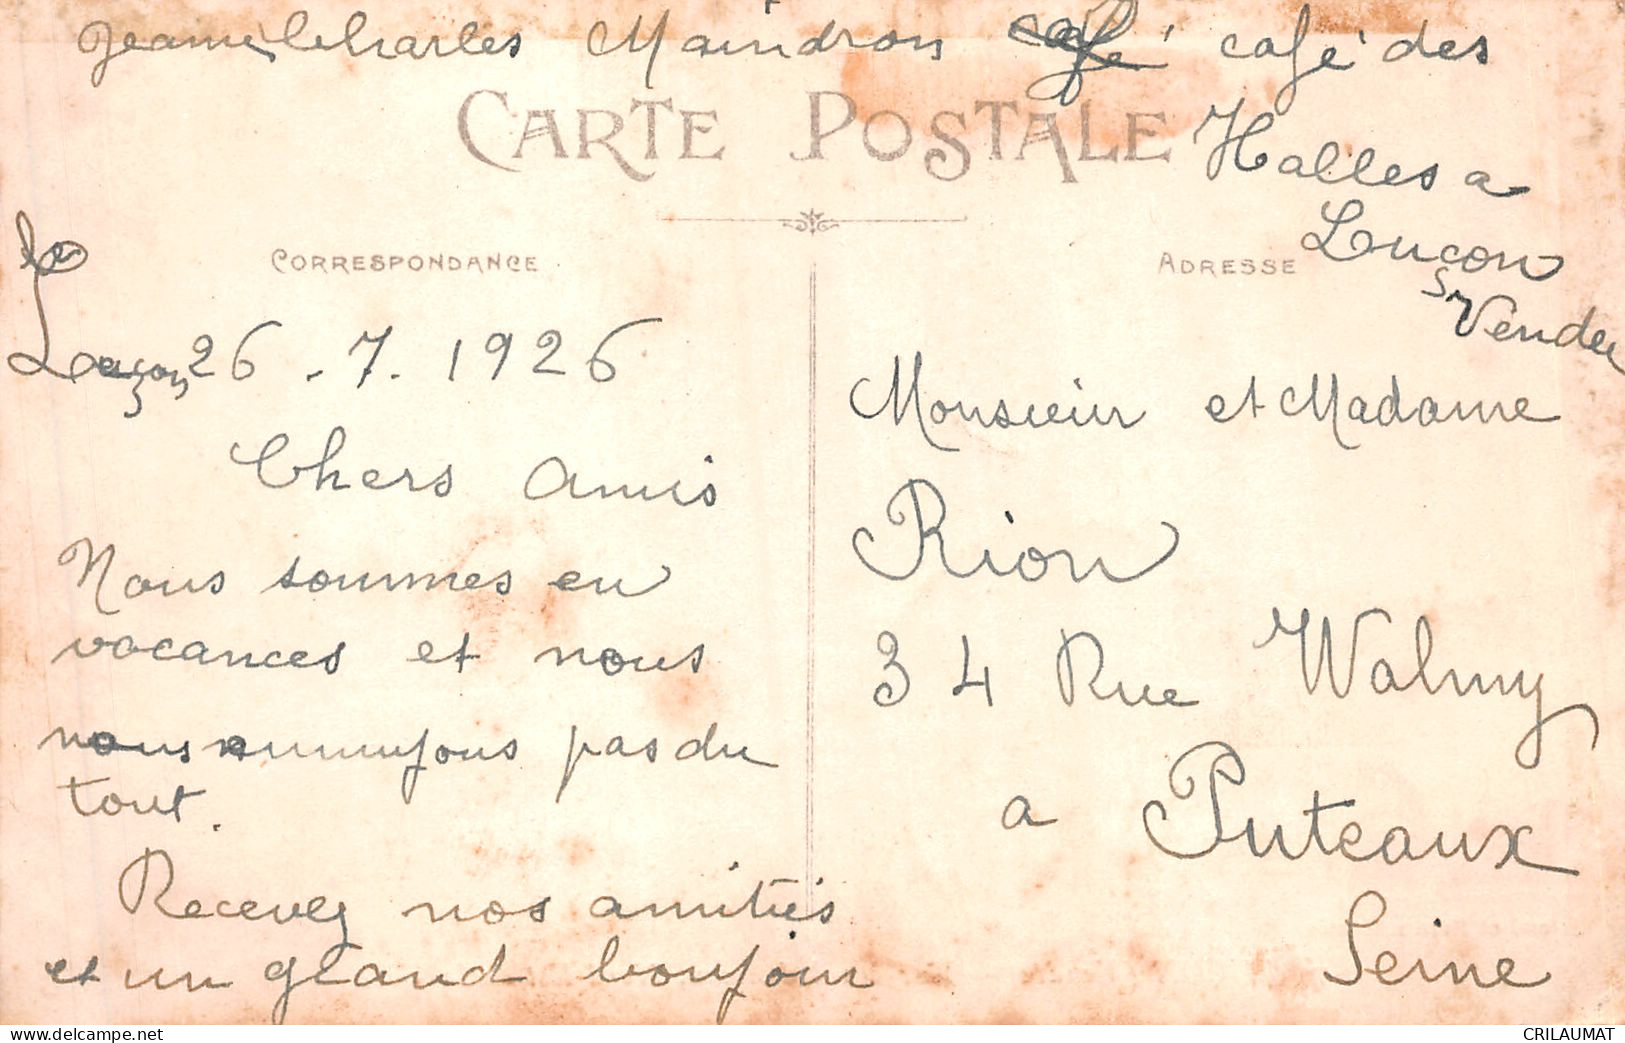 Jeanne Charles Maindron café café des
Halles a
Luçon
Vendee
CARTE POSTALE
CORRESPONDANCE
ADRESSE
le
Luçon 26.7.1926
Chers amis
Nous sommes en
vacances et nous
nous ennuyons pas du
tout.
Recevez nos amitiés
et un grand bonjour
Monsieur et Madame
Rion
34 Rue Walmy
a Puteaux
Seine
delcampe.net
CRILAUMAT